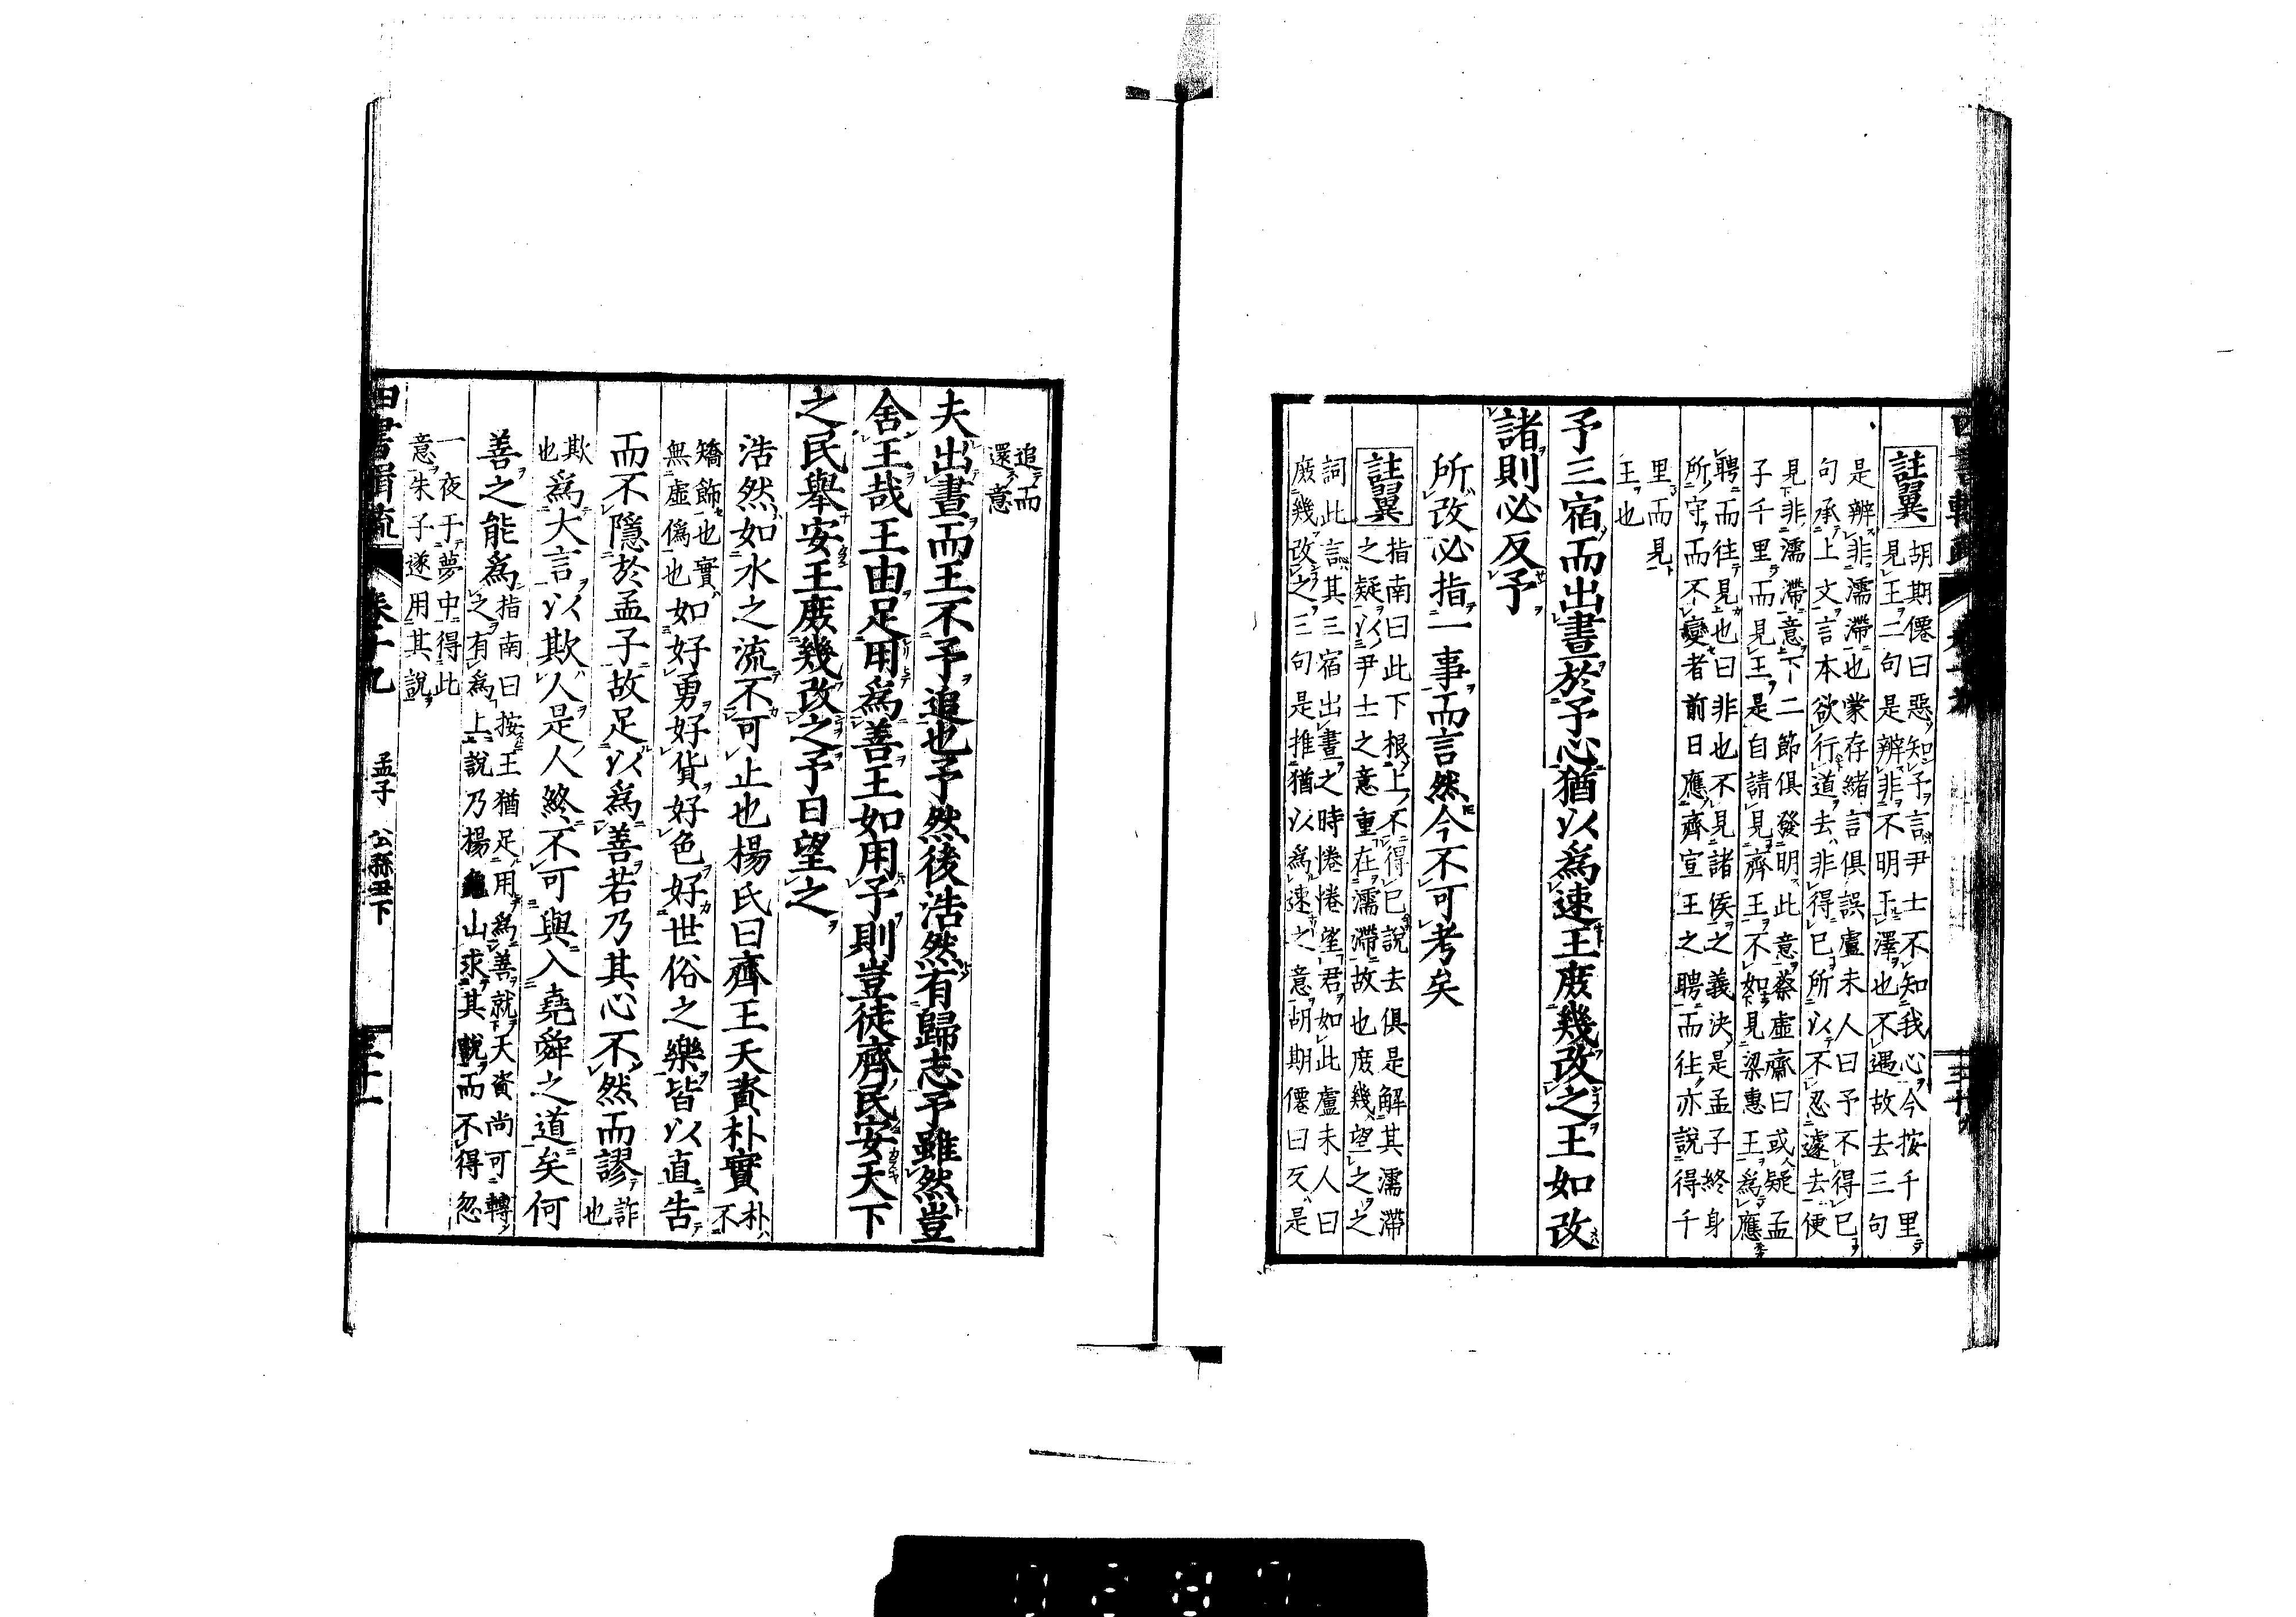 註翼
胡期僊曰惡知予言尹士不知我心今按千里
見王二句是辨非不明干澤也不遇故去三句
是辨非濡滯也蒙存緒言俱誤盧未人曰予不得已
句承上文言本欲行道去非得已所以不忍遽去便
見非濡滯意下二節俱發明此意蔡虛齋曰或疑孟
子千里而見王是自請見齊王不如見梁惠王為應
聘而往見也曰非也不見諸侯之義決是孟子終身
所守而不變者前日應齊宣王之聘而往亦說得千
里而見
王也
予三宿而出晝於予心猶以為速王庻幾改之王如改
諸則必反予
所改必指一事而言然今不可考矣
註翼
指南曰此下根上不得已說去俱是解其濡滯
之疑以尹士之意重在濡滯故也庻幾望之之
詞此言其三宿出晝之時惓惓望君如此盧未人曰
庻幾改之三句是推猶以為速之意胡期僊曰反是
追而
還意
夫出晝而王不予追也予然後浩然有歸志予雖然豈
舍王哉王由足用為善王如用予則豈徒齊民安天下
之民舉安王庻幾改之予日望之
浩然如水之流不可止也楊氏曰齊王天資朴實朴不
矯飾也實
無虛僞也如好勇好貨好色好世俗之樂皆以直告
而不隱於孟子故足以為善若乃其心不然而謬詐也
欺也為大言以欺人是人終不可與入堯舜之道矣何
善之能為指南曰按王猶足用為善就天資尚可轉
之有為上說乃楊龜山求其說而不得忽
一夜于夢中得此
意朱子遂用其說
卷十九
孟子
公孫丑下
三十一